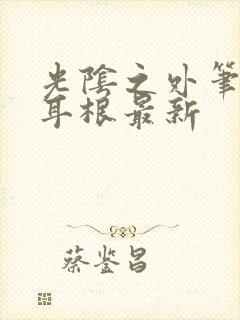 光陰之外筆
耳根最新
蔡鉴昌